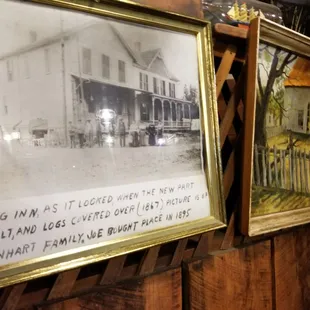 G INN, AS IT LOOKED, WHEN THE NEW PART
LT, AND LOGS COVERED OVER (1867) PICTURE IS OF
NHART FAMILY, JOE BOUGHT PLACE IN 1895